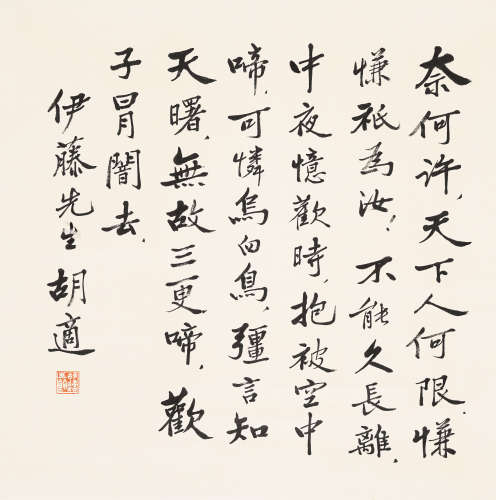 奈何許，天下人何限，慊
慊祇為汝！不能久長離，
中夜憶歡時，抱被空中
啼，可憐烏臼鳥，彊言知
天曙，無故三更啼，歡
子冐闇去，
伊藤先生 胡適